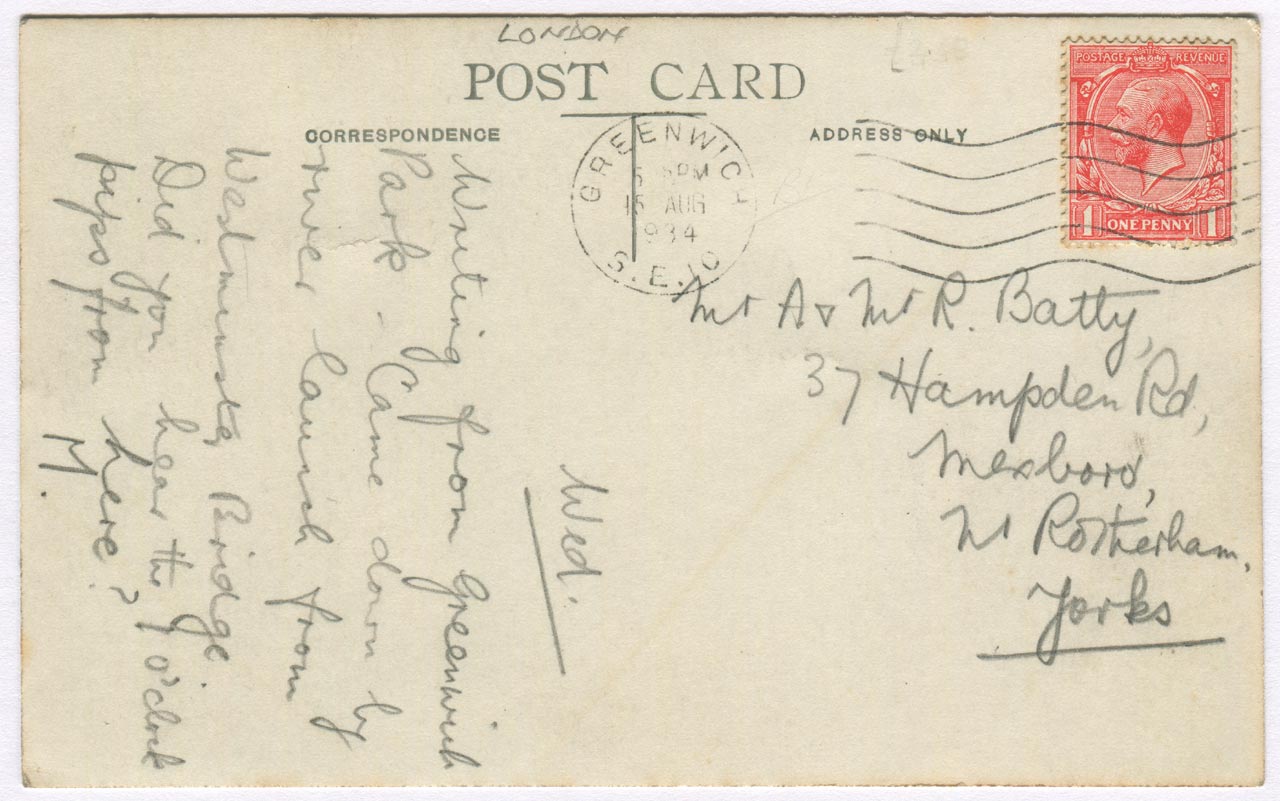 LONDON
POST CARD
CORRESPONDENCE
ADDRESS ONLY
POSTAGE REVENUE
1 ONE PENNY 1
GREENWICH
PM
15 AUG
1934
S.E.10
Wed.
Writing from Greenwich
Park - Came down by
river launch from
Westminster Bridge.
Did you hear the 1 o'clock
pips from here?
M.
Mr A & Mr R. Batty,
37 Hampden Rd,
Mexboro,
Nr Rotherham,
Yorks